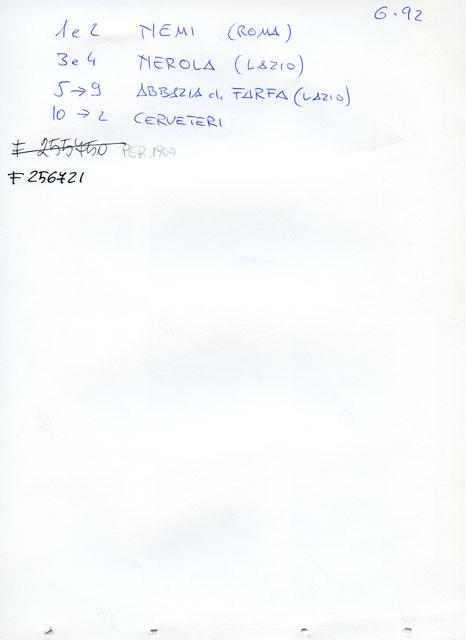 6.92
1 e 2 NEMI (ROMA)
3 e 4 NEROLA (LAZIO)
5 → 9 ABBAZIA di FARFA (LAZIO)
10 → 2 CERVETERI
F 255750 PER
F 256721